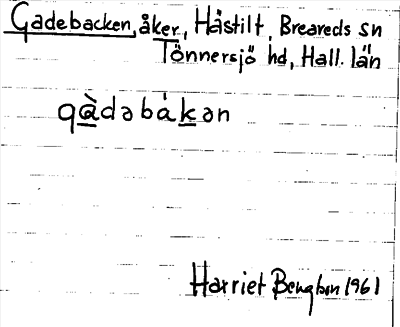 Gadebacken, åker, Håstilt, Breareds sn
Tönnersjö hd, Hall. län
gàdəbákən
Harriet Bengtson 1961